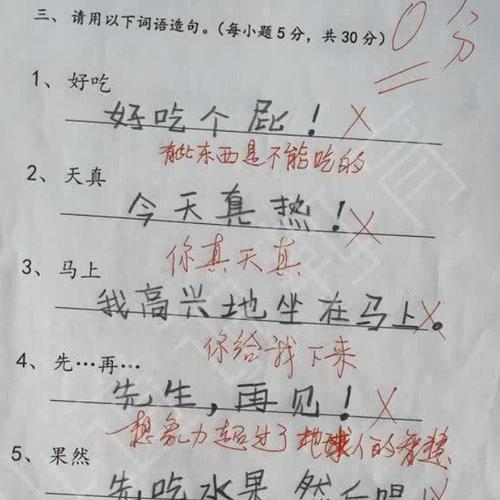 三、请用以下词语造句。(每小题5分，共30分)
0分
1、好吃
好吃个屁！
有些东西是不能吃的
2、天真
今天真热！
你真天真
3、马上
我高兴地坐在马上。
你给我下来
4、先…再…
先生，再见！
想象力超过了地球人的智慧
5、果然
先吃水果，然后喝